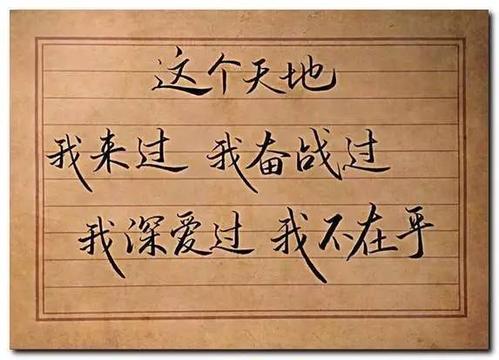 这个天地
我来过 我奋战过
我深爱过 我不在乎